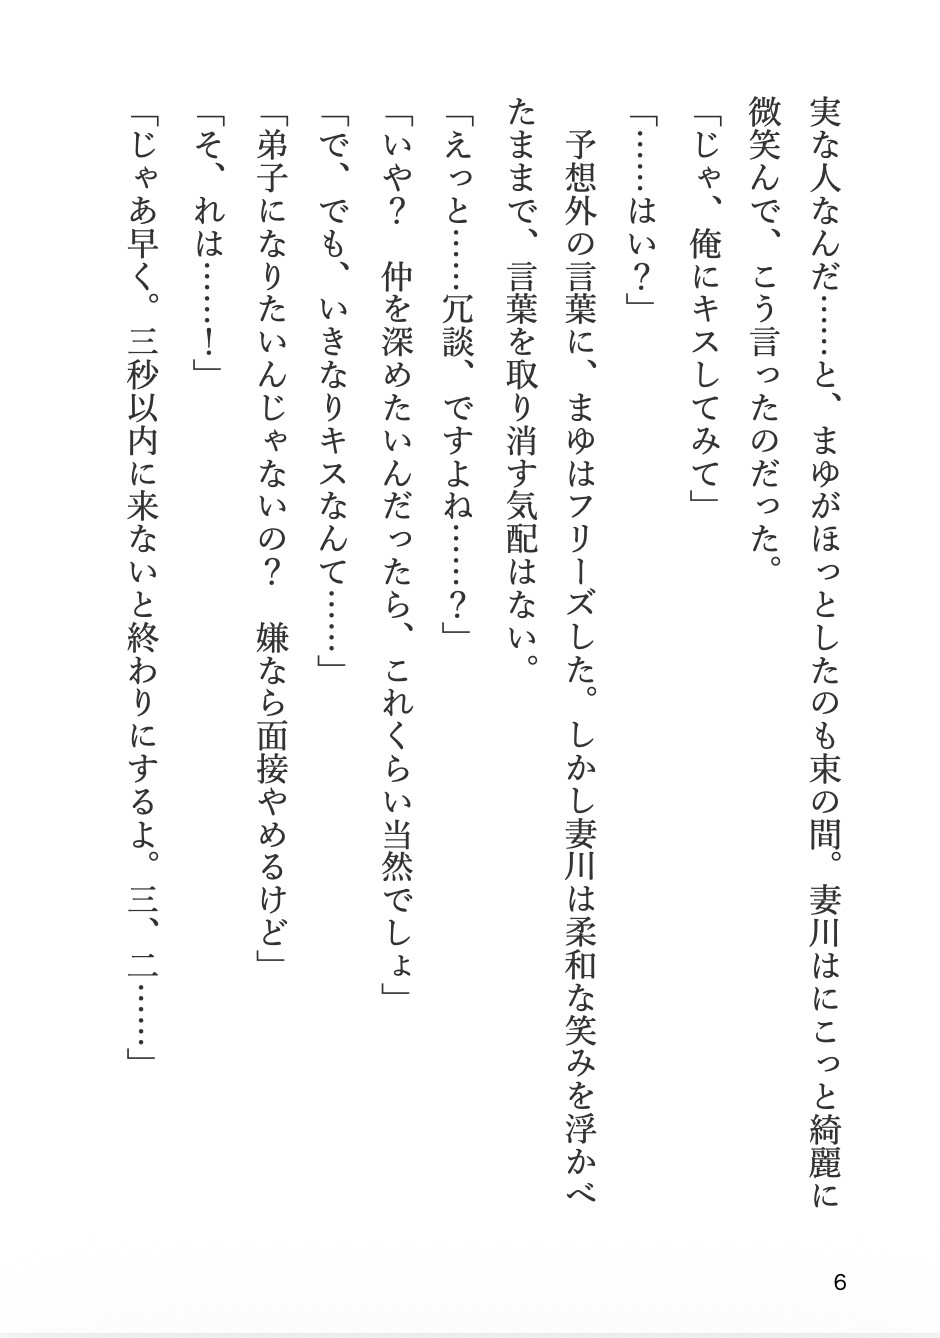 実な人なんだ……と、まゆがほっとしたのも束の間。妻川はにこっと綺麗に
微笑んで、こう言ったのだった。
「じゃ、俺にキスしてみて」
「……はい？」
　予想外の言葉に、まゆはフリーズした。しかし妻川は柔和な笑みを浮かべ
たままで、言葉を取り消す気配はない。
「えっと……冗談、ですよね……？」
「いや？　仲を深めたいんだったら、これくらい当然でしょ」
「で、でも、いきなりキスなんて……」
「弟子になりたいんじゃないの？　嫌なら面接やめるけど」
「そ、れは……！」
「じゃあ早く。三秒以内に来ないと終わりにするよ。三、二……」
6